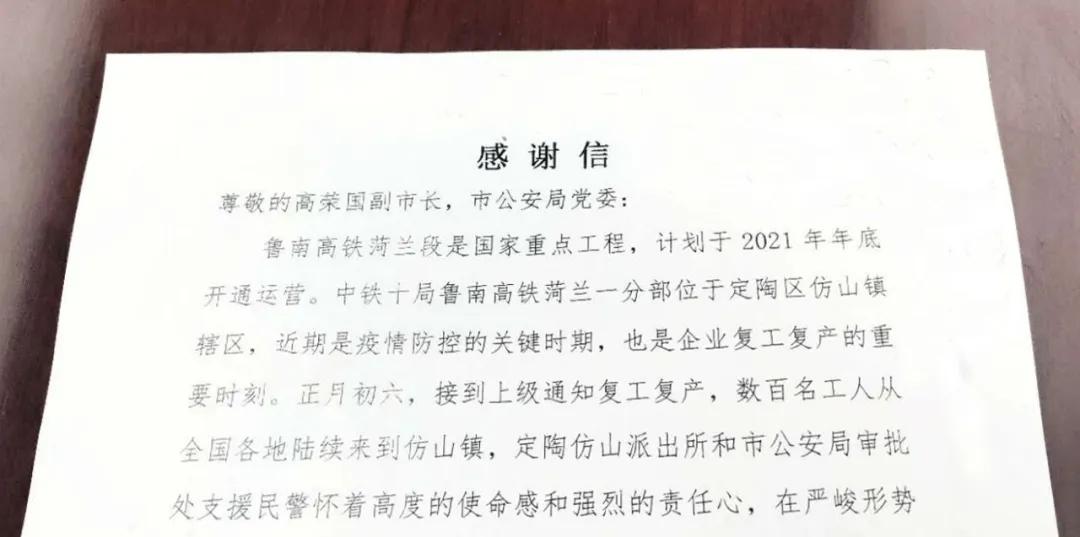 感谢信
尊敬的高荣国副市长，市公安局党委：
鲁南高铁菏兰段是国家重点工程，计划于 2021 年年底
开通运营。中铁十局鲁南高铁菏兰一分部位于定陶区仿山镇
辖区，近期是疫情防控的关键时期，也是企业复工复产的重
要时刻。正月初六，接到上级通知复工复产，数百名工人从
全国各地陆续来到仿山镇，定陶仿山派出所和市公安局审批
处支援民警怀着高度的使命感和强烈的责任心，在严峻形势